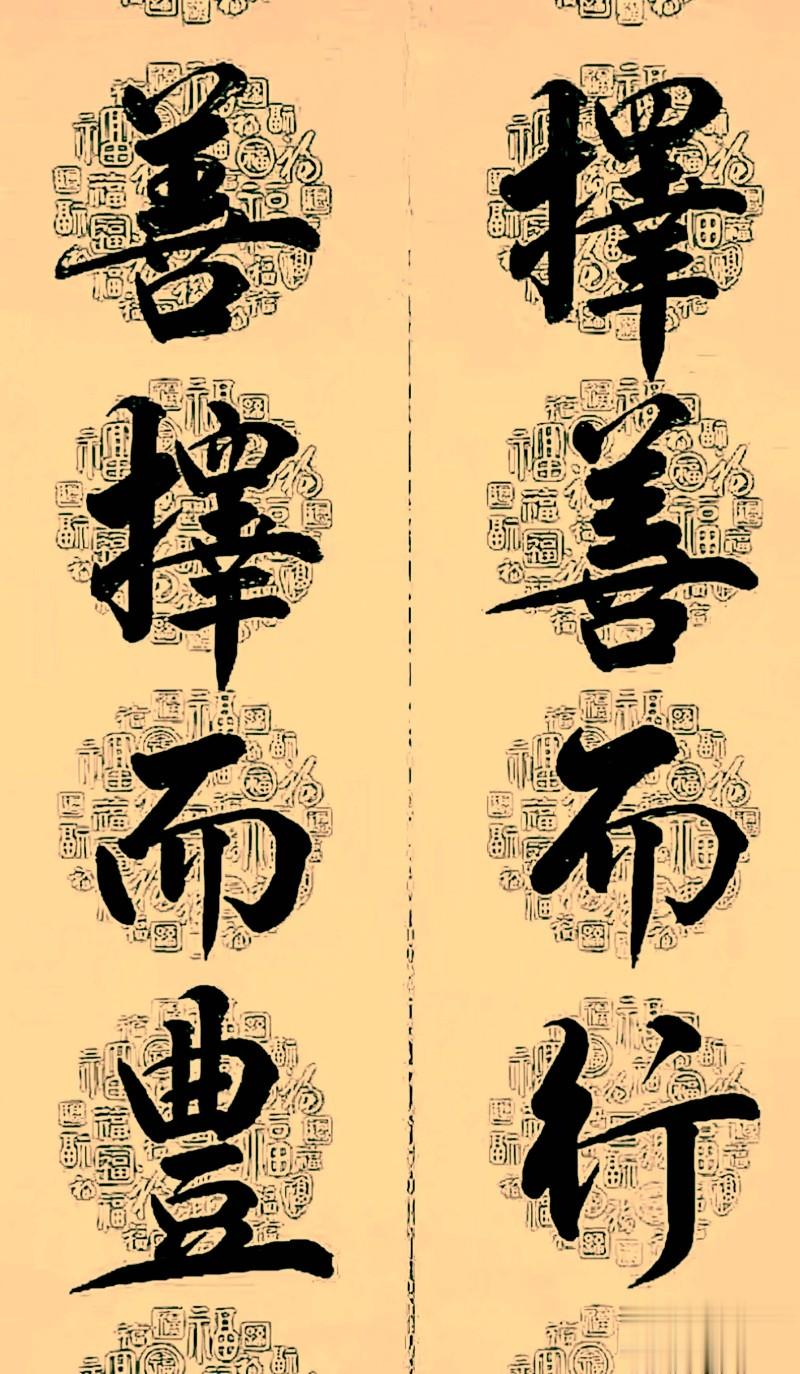 擇善而行
善擇而豊